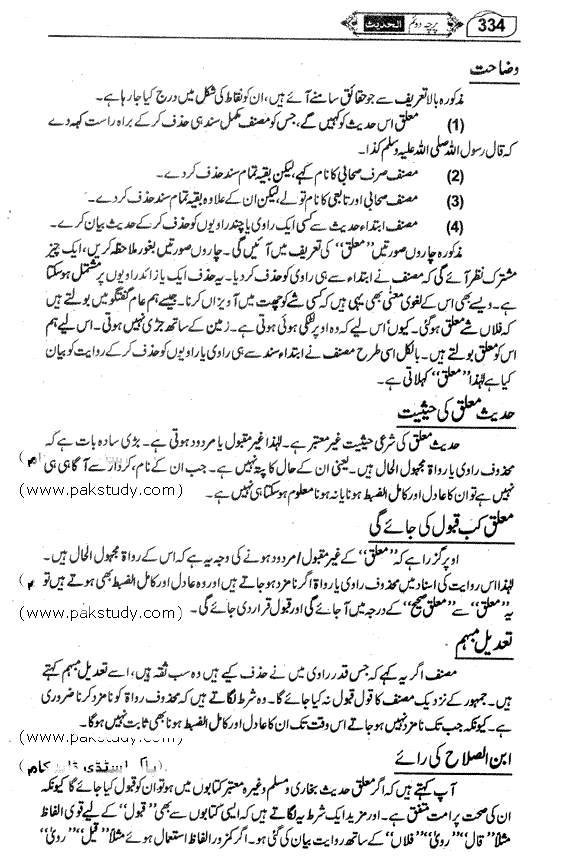 334 پرچہ دوئم الحدیث
وضاحت
مذکورہ بالا تعریف سے جو حقائق سامنے آئے ہیں، ان کو نقاط کی شکل میں درج کیا جا رہا ہے۔
(1) معلق اس حدیث کو کہیں گے، جس کو مصنف مکمل سند ہی حذف کر کے براہ راست کہہ دے
کہ قال رسول اللہ صلی اللہ علیہ وسلم کذا۔
(2) مصنف صرف صحابی کا نام کہے، لیکن بقیہ تمام سند حذف کر دے۔
(3) مصنف صحابی اور تابعی کا نام تو لے، لیکن ان کے علاوہ بقیہ تمام سند حذف کر دے۔
(4) مصنف ابتداء حدیث سے کسی ایک راوی یا چند راویوں کو حذف کر کے حدیث بیان کرے۔
مذکورہ چاروں صورتیں ”معلق“ کی تعریف میں آئیں گی۔ چاروں صورتیں بغور ملاحظہ کریں، ایک چیز
مشترک نظر آئے گی کہ مصنف نے ابتداء سے ہی راوی کو حذف کر دیا۔ یہ حذف ایک یا زائد راویوں پر مشتمل ہو سکتا
ہے۔ ویسے بھی اس کے لغوی معنی بھی یہی ہیں کہ کسی شے کو چھت میں آویزاں کرنا۔ جیسے ہم عام گفتگو میں بولتے ہیں
کہ فلاں شے معلق ہو گئی۔ کیوں؟ اس لیے کہ وہ اوپر لٹکی ہوئی ہوتی ہے۔ زمین کے ساتھ جڑی نہیں ہوتی۔ اس لیے ہم
اس کو معلق بولتے ہیں۔ بالکل اسی طرح مصنف نے ابتداء سند سے ہی راوی یا راویوں کو حذف کر کے روایت کو بیان
کیا ہے لہٰذا ”معلق“ کہلاتی ہے۔
حدیث معلق کی حیثیت
حدیث معلق کی شرعی حیثیت غیر معتبر ہے۔ لہٰذا غیر مقبول یا مردود ہوتی ہے۔ بڑی سادہ بات ہے کہ
محذوف راوی یا رواۃ مجہول الحال ہیں۔ یعنی ان کے حال کا پتہ نہیں ہے۔ جب ان کے نام، کردار سے آگاہی ہی
نہیں ہے تو ان کا عادل اور کامل الضبط ہونا یا نہ ہونا معلوم ہو سکتا ہی نہیں ہے۔ (www.pakstudy.com)
معلق کب قبول کی جائے گی
اوپر گزرا ہے کہ ”معلق“ کے غیر مقبول / مردود ہونے کی وجہ یہ ہے کہ اس کے رواۃ مجہول الحال ہیں۔
لہٰذا اس روایت کی اسناد میں محذوف راوی یا رواۃ اگر نامزد ہو جاتے ہیں اور وہ عادل اور کامل الضبط بھی ہوتے ہیں تو
یہ ”معلق“ سے ”معلق صحیح“ کے درجہ میں آ جائے گی اور قبول قرار دی جائے گی۔ (www.pakstudy.com)
تعدیل مبہم
مصنف اگر یہ کہے کہ جس قدر راوی میں نے حذف کیے ہیں وہ سب ثقہ ہیں، اسے تعدیل مبہم کہتے
ہیں۔ جمہور کے نزدیک مصنف کا قول قبول نہ کیا جائے گا۔ وہ شرط لگاتے ہیں کہ محذوف رواۃ کو نامزد کرنا ضروری
ہے۔ کیونکہ جب تک نامزد نہیں ہو جاتے اس وقت تک ان کا عادل اور کامل الضبط ہونا بھی ثابت نہیں ہوگا۔
(www.pakstudy.com)
ابن الصلاح کی رائے
(پاک اسٹڈی ڈاٹ کام)
آپ کہتے ہیں کہ اگر معلق حدیث بخاری و مسلم وغیرہ معتبر کتابوں میں ہو تو ان کو قبول کیا جائے گا کیونکہ
ان کی صحت پر امت متفق ہے۔ اور مزید ایک شرط یہ لگاتے ہیں کہ ایسی کتابوں سے بھی ”قبول“ کے لیے قوی الفاظ
مثلاً ”قال“ ”رویٰ“ ”فلاں“ کے ساتھ روایت بیان کی گئی ہو۔ اگر کمزور الفاظ استعمال ہوئے مثلاً ”قیل“ ”رویٰ“